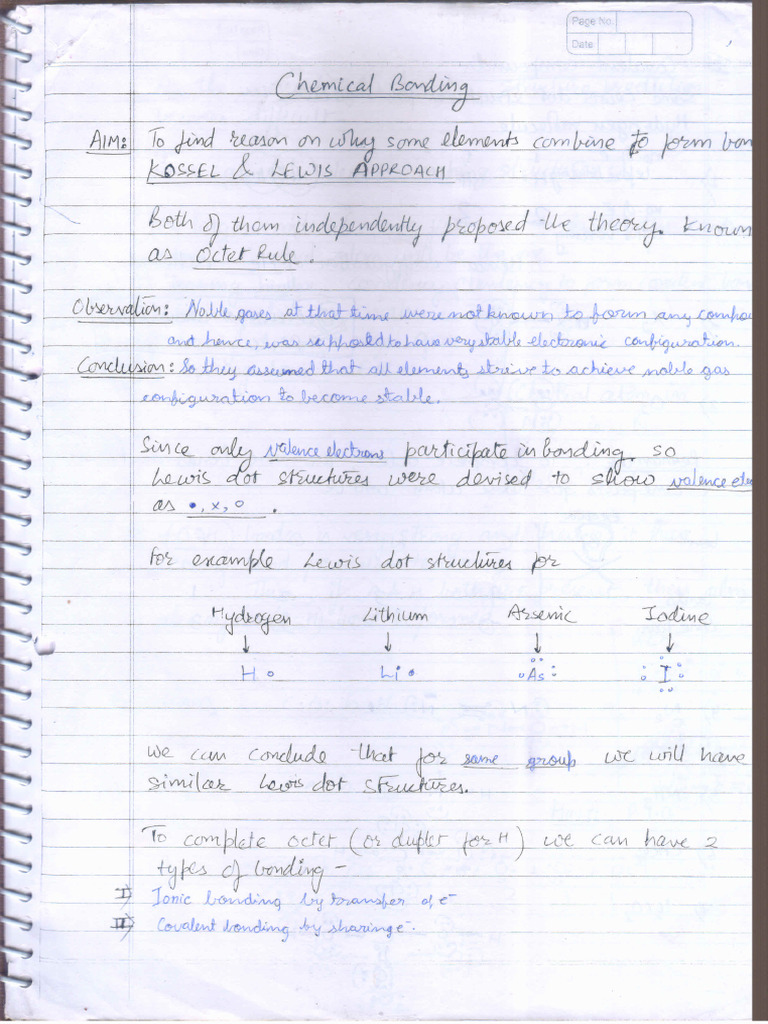 Page No.
Date
Chemical Bonding
AIM: To find reason on why some elements combine to form bon
KOSSEL & LEWIS APPROACH
Both of them independently proposed the theory. Known
as Octet Rule.
Observation: Noble gases at that time were not known to form any compou
and hence, was supposed to have very stable electronic configuration.
Conclusion: So they assumed that all elements strive to achieve noble gas
configuration to become stable.
Since only valence electrons participate in bonding. So
Lewis dot structures were devised to show valence ele
as •, x, o.
For example Lewis dot structures for
Hydrogen Lithium Arsenic Iodine
↓ ↓ ↓ ↓
H Li As I
We can conclude that for same group we will have
similar Lewis dot structures.
To complete octet (or duplet for H) we can have 2
types of bonding -
I) Ionic bonding by transfer of e-
II) Covalent bonding by sharing e-.